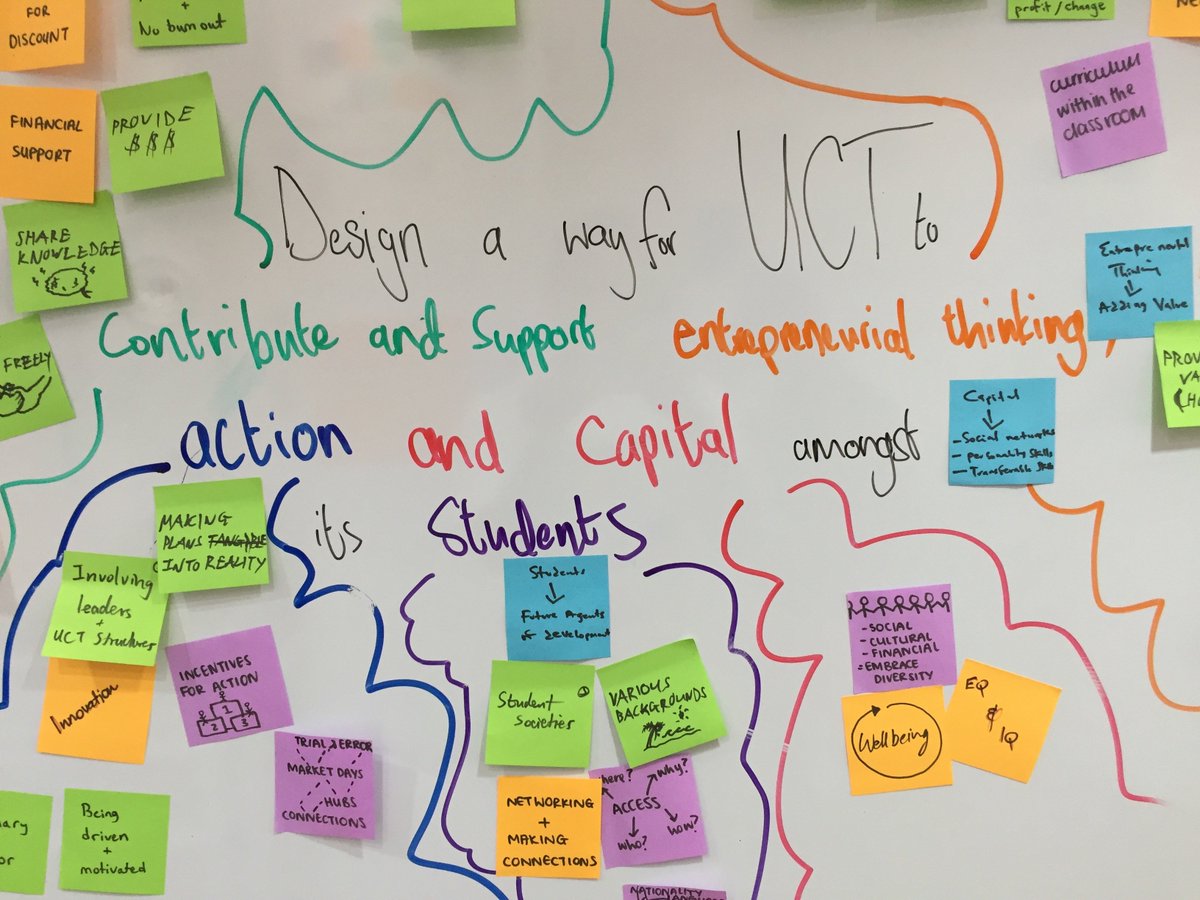 FOR
DISCOUNT
+
No burn out
profit/change
FINANCIAL
SUPPORT
PROVIDE
$$$
curriculum
within the
classroom
SHARE
KNOWLEDGE
Design a way for UCT to
Contribute and Support entrepreneurial thinking,
action and Capital amongst
its Students
Thinking
Adding Value
FREELY
PROV
VA
Capital
- Social networks
- personality skills
- Transferable skills
MAKING
PLANS TANGABLE
INTO REALITY
Involving
leaders
+
UCT Structures
Innovation
INCENTIVES
FOR ACTION
1
2 3
TRIAL & ERROR
MARKET DAYS
HUBS
CONNECTIONS
Being
driven
+
motivated
Students
Future Agents
of development
Student
Societies
VARIOUS
BACKGROUNDS
NETWORKING
+
MAKING
CONNECTIONS
here? why?
ACCESS
who? how?
NATIONALITY
- SOCIAL
- CULTURAL
- FINANCIAL
= EMBRACE
DIVERSITY
Wellbeing
EQ
IQ